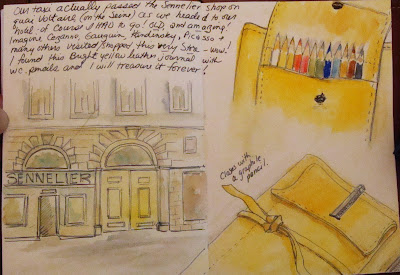 Our taxi actually passed the Sennelier shop on
quai Voltaire (on the Seine) as we headed to our
hotel. Of course I HAD to go! OLD, and amazing!
Imagine Cezanne, Gauguin, Kandinsky, Picasso &
many others visited/shopped this very store - wow!
I found this Bright yellow leather journal with
w.c. pencils and I will treasure it forever!
SENNELIER
Closes with
a graphite
pencil!